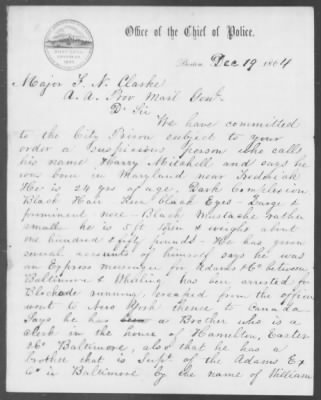 Office of the Chief of Police.
Boston Dec 19 1864
Major F. N. Clarke
A. A. Prov Mar'l Genl.
Dr Sir
We have committed
to the City Prison subject to your
order a Suspicious person who calls
his name Harry Mitchell and says he
was born in Maryland near Frederick
He is 24 yrs of age. Dark Complexion
Black Hair Dark Eyes - Large &
prominent nose - Black Mustache rather
small he is 5 ft & weighs about
one hundred & fifty pounds - He has given
several accounts of himself says he was
an Express messenger for Adams & Co between
Baltimore & Wheeling has been arrested for
Blockade running, escaped from the officer
went to New York thence to Canada
Says he has a Brother who is a
clerk in the house of Hamilton, Easter
& Co Baltimore, also that he has a
brother that is Supt. of the Adams Ex
Co in Baltimore by the name of William